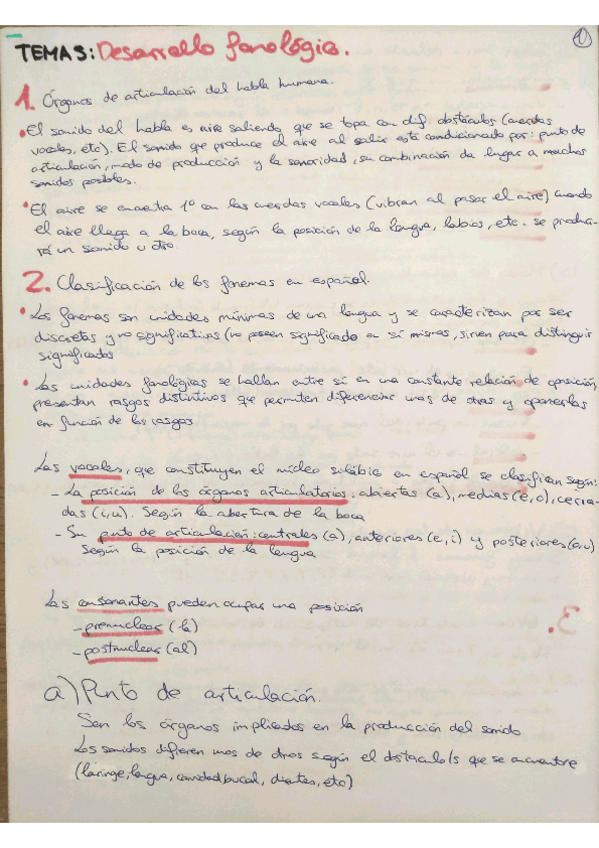 1
TEMA5: Desarrollo fonológico.
1. Órganos de articulación del habla humana.
• El sonido del habla es aire saliendo, que se topa con dif. obstáculos (cuerdas
vocales, etc). El sonido que produce el aire al salir está condicionado por: punto de
articulación, modo de producción y la sonoridad, su combinación da lugar a muchos
sonidos posibles.
• El aire se encuentra 1º con las cuerdas vocales (vibran al pasar el aire) cuando
el aire llega a la boca, según la posición de la lengua, labios, etc. se produci-
rá un sonido u otro.
2. Clasificación de los fonemas en español.
• Los fonemas son unidades mínimas de una lengua y se caracterizan por ser
discretas y no significativas (no poseen significado en sí mismas, sirven para distinguir
significados
• Las unidades fonológicas se hallan entre sí en una constante relación de oposición,
presentan rasgos distintivos que permiten diferenciar unas de otras y oponerlas
en función de los rasgos
Las vocales, que constituyen el núcleo silábico en español se clasifican según:
- La posición de los órganos articulatorios: abiertas (a), medias (e, o), cerra-
das (i, u). Según la abertura de la boca
- Su punto de articulación: centrales (a), anteriores (e, i) y posteriores (o, u)
Según la posición de la lengua
Las consonantes pueden ocupar una posición
- prenuclear (la)
- postnuclear (al)
a) Punto de articulación.
Son los órganos implicados en la producción del sonido
Los sonidos difieren unos de otros según el obstáculo/s que se encuentre
(laringe, lengua, cavidad bucal, dientes, etc)